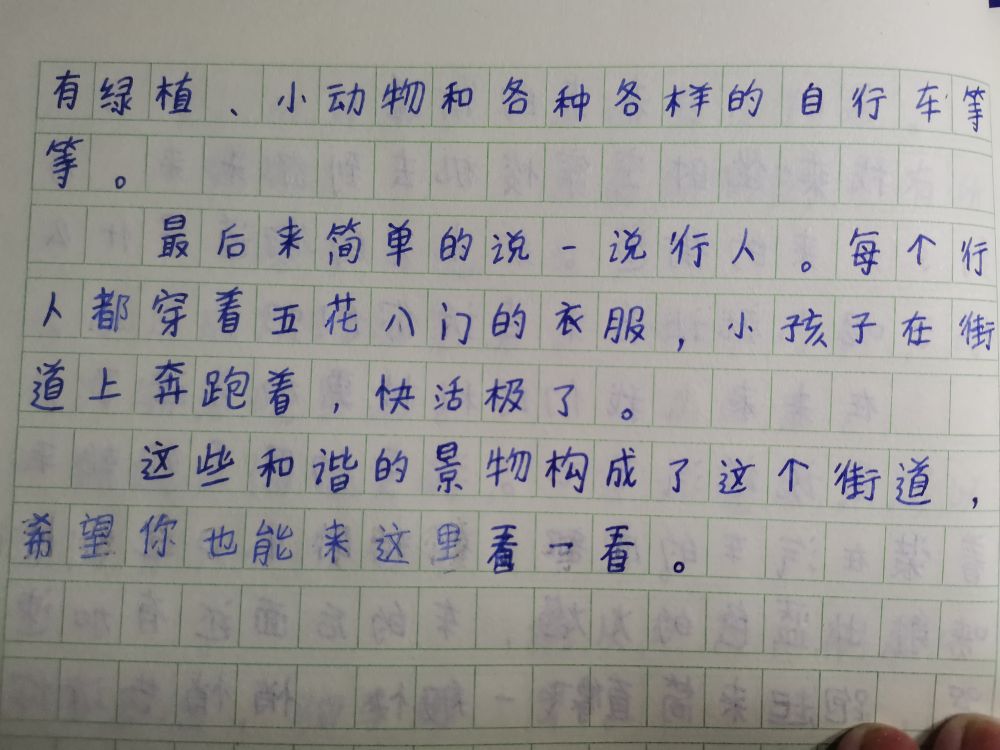 有绿植、小动物和各种各样的自行车等
等。
最后来简单的说一说行人。每个行
人都穿着五花八门的衣服，小孩子在街
道上奔跑着，快活极了。
这些和谐的景物构成了这个街道，
希望你也能来这里看一看。